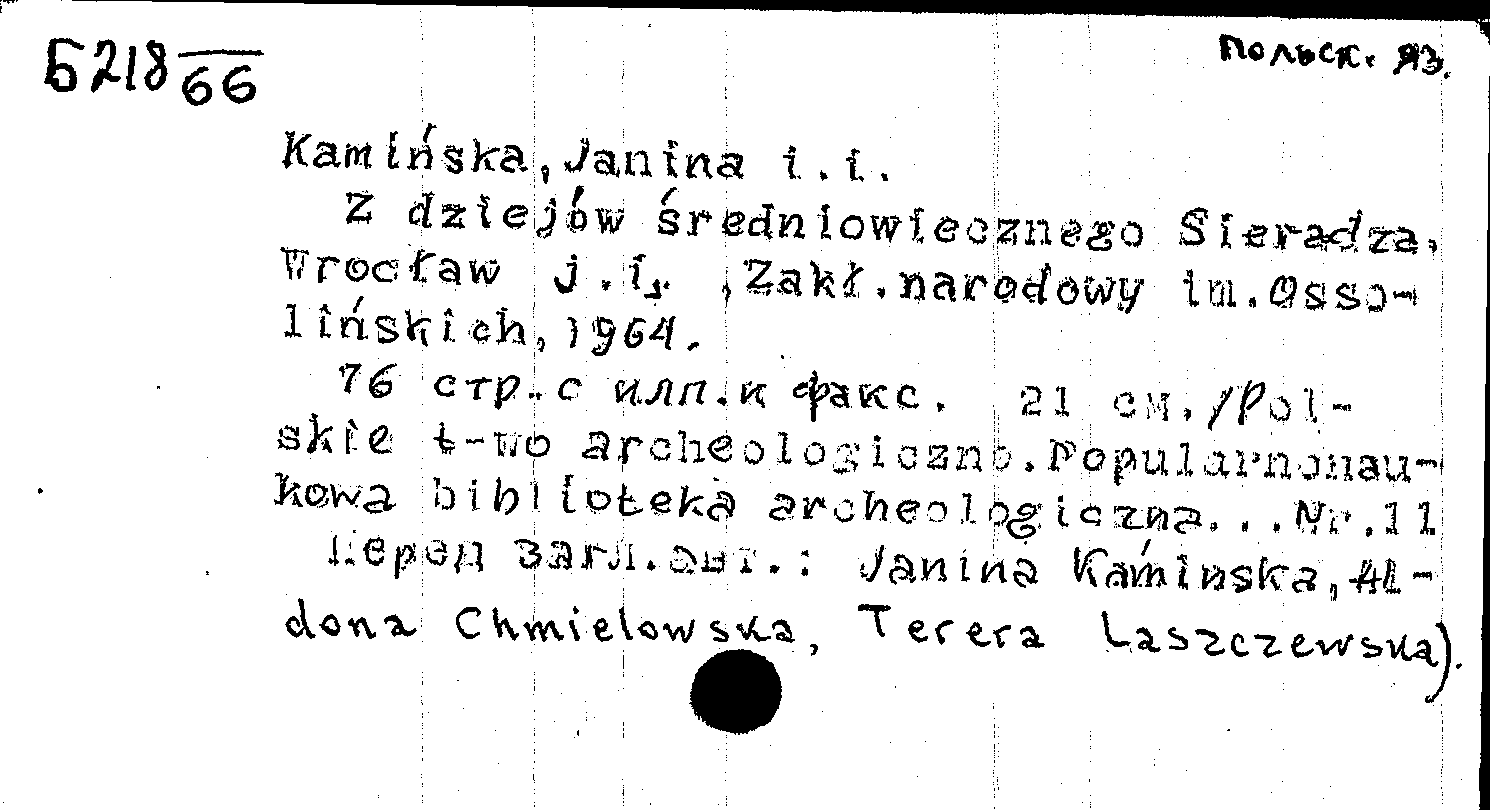 Б218 66
польск. яз.
Kamińska, Janina i.i.
Z dziejów średniowiecznego Sieradza.
Wrocław j.i. ,Zakł.narodowy im.Osso-
lińskich, 1964.
76 стр. с илл.и факс. 21 см./Pol-
skie t-wo archeologiczno.Popularnonau-
kowa biblioteka archeologiczna...Nr.11
Перед загл.авт.: Janina Kamińska, Al-
dona Chmielowska, Terera Laszczewska).